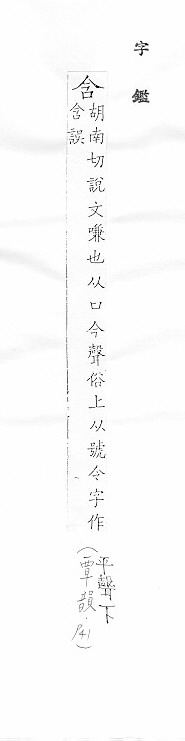 字鑑
含 胡南切說文嗛也从口今聲俗上从號令字作
含誤
(平聲下
覃韻.P41)